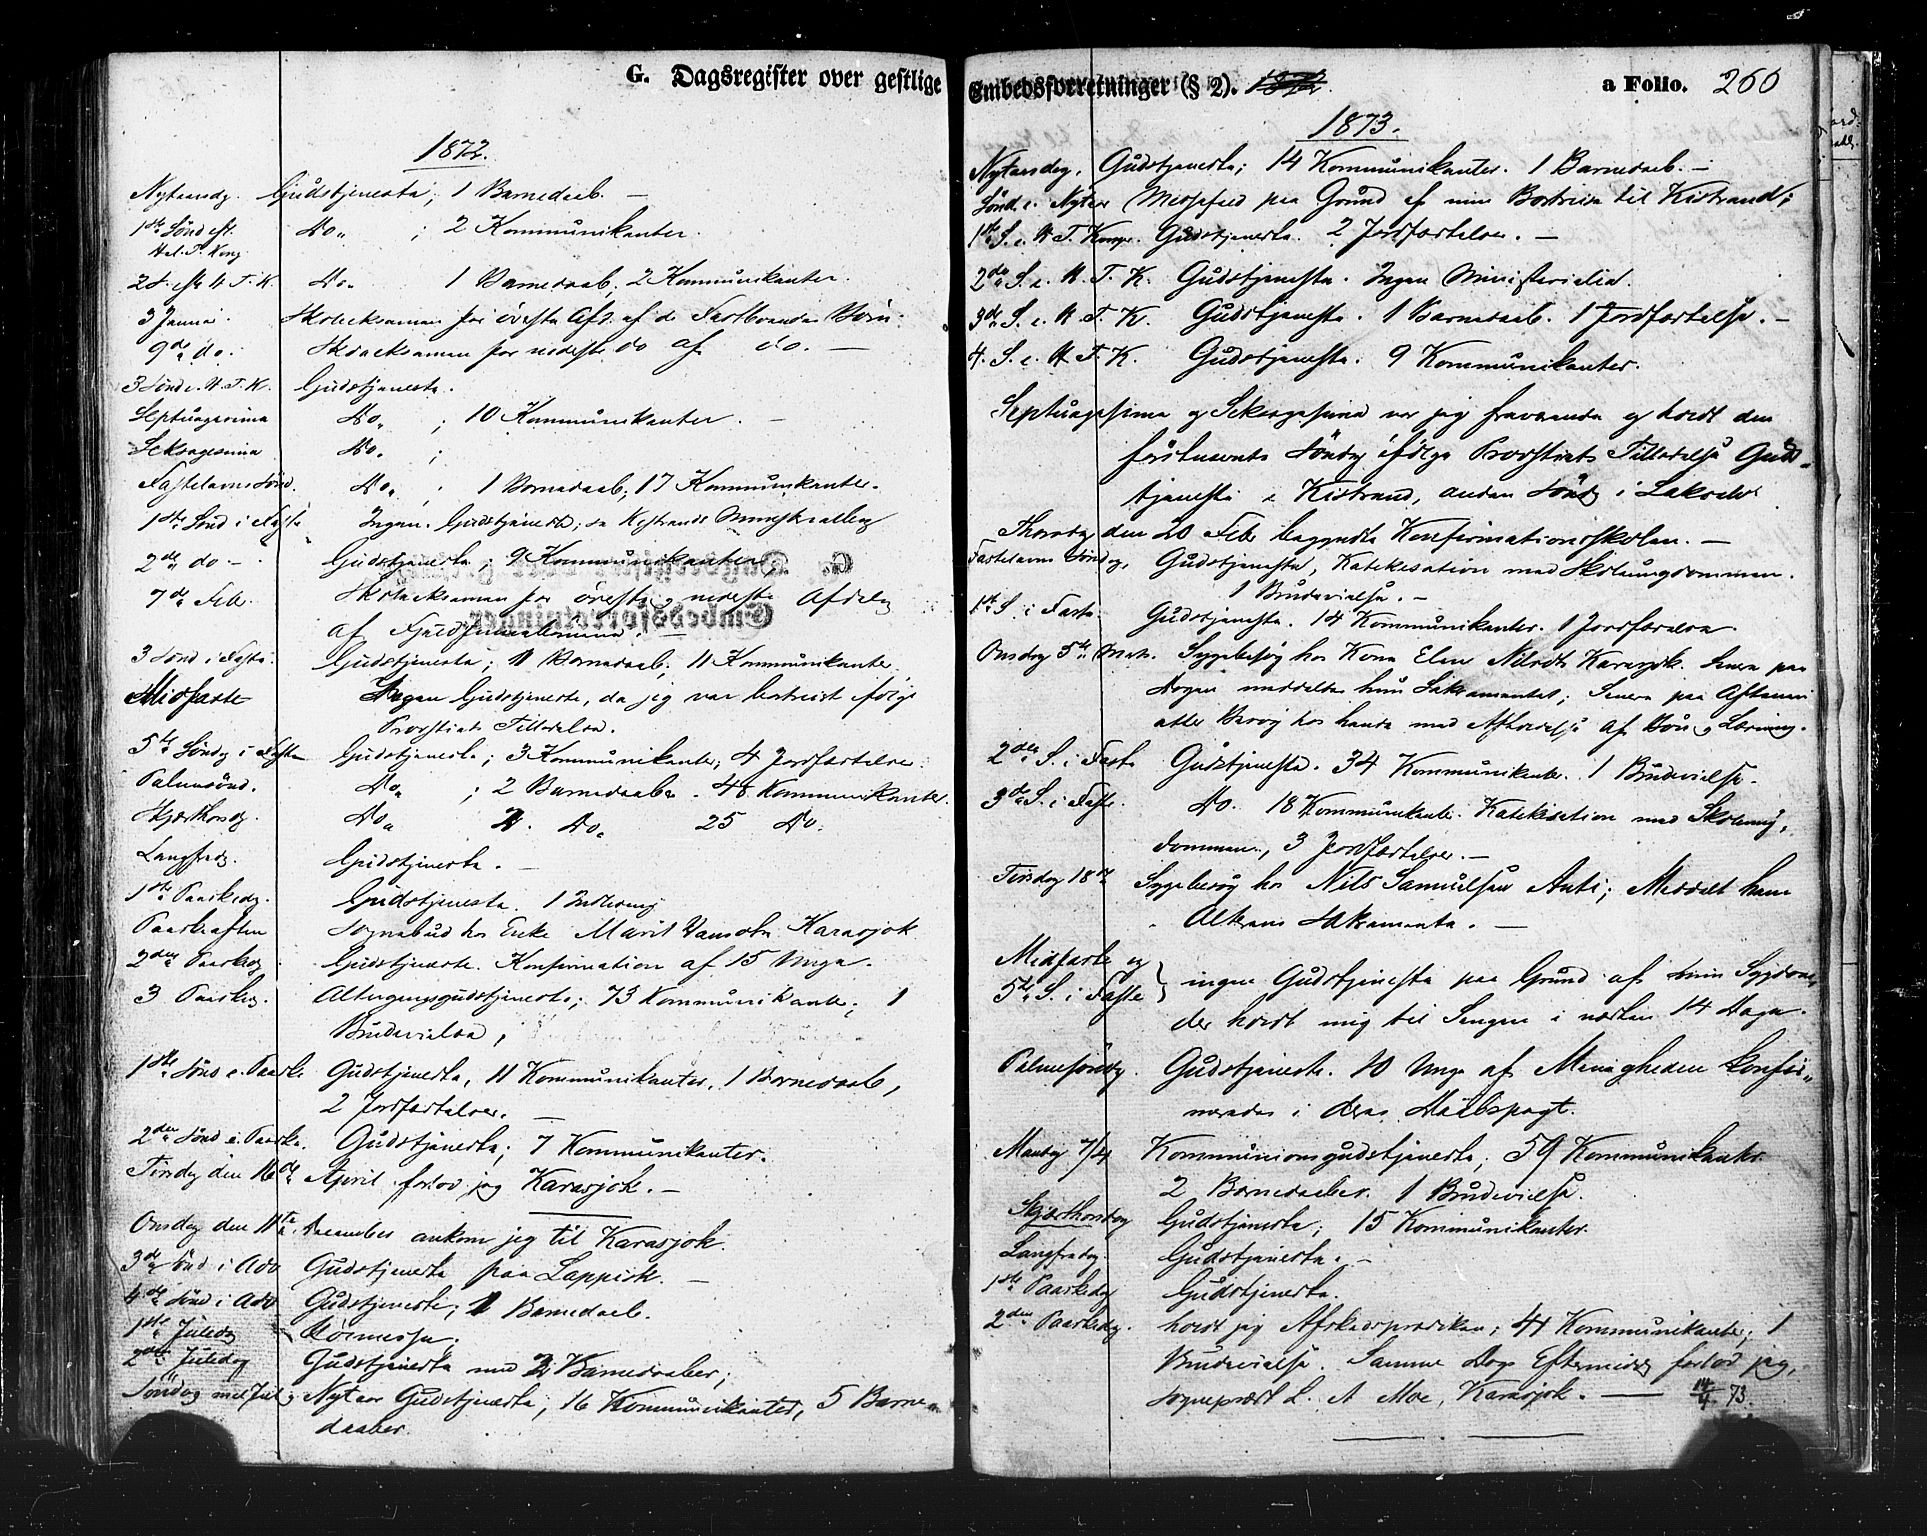 G. Dagsregister over gestlige
1872.
Nytaarsdg. Gudstjeneste; 1 Barnedaab. —
1ste Sønd eft. Do „ ; 2 Kommunikanter.
Hel. T. Kong
2 S. eft H. T. K. Do „ 1 Barnedaab; 2 Kommunikanter.
3 Januar. Skoleeksamen for øverste Afd. af de Fastboendes Børn.
9de do. Skoleeksamen for nederste do af do. —
3 Sønd e. H. T. K. Gudstjeneste.
Septuagesima Do „ ; 10 Kommunikanter. —
Seksagesima Do „ ;
Fastelavns Sønd. Do „ ; 1 Barnedaab; 17 Kommunikanter.
1ste Sønd i Faste Ingen Gudstjeneste; Kistrands
2de do — Gudstjeneste; 9 Kommunikanter
7de Feb. Skoleeksamen for øverste og nederste Afdeling
af
3 Sønd i Faste. Gudstjeneste; 1 Barnedaab; 11 Kommunikanter.
Midfaste Ingen Gudstjeneste, da jeg var bortreist ifølge
Provstiets Tilladelse.
5te Søndg i Fasten Gudstjeneste; 3 Kommunikanter; 4 Jordfæstelser.
Palmesønd. Do „ ; 2 Barnedaaber. 48 Kommunikanter.
Skjærthorsdg. Do „ 2. Do „ 25 Do.
Langfredg. Gudstjeneste. —
1ste Paaskedg. Gudstjeneste. 1
Paaskeaften Sognebud hos Enke Marit Karasjok
2den Paaskedg Gudstjeneste. Konfirmation af 15 Unge.
3 Paaskedg. Altergangsgudstjeneste; 73 Kommunikanter; 1
Brudevielse;
1ste Sønd e. Paaske Gudstjeneste, 11 Kommunikanter, 1 Barnedaab,
2 Jordfæstelser. —
2den Sønd e. Paaske. Gudstjeneste; 7 Kommunikanter.
Tirsdag den 16de April forlod jeg Karasjok. —
Onsdag den 11te December ankom jeg til Karasjok.
3de Sønd i Adv Gudstjeneste paa Lappisk. —
4de Sønd i Adv Gudstjeneste; 1 Barnedaab.
1ste Juledg Kormesse.
2den Juledag Gudstjeneste med 2 Barnedaaber;
Søndag mel Jul og Nytaar Gudstjeneste; 16 Kommunikanter, 5 Barne-
daaber.
Embedsforretninger (§ 2). 1872
a Folio. 260
1873.
Nytaarsdg. Gudstjeneste; 14 Kommunikanter. 1 Barnedaab. —
Sønd. e. Nytaar Messefald paa Grund af min Bortreise til Kistrand;
1ste S. e. H. T. Konger. Gudstjeneste. 2 Jordfæstelser. —
2den S. e. H. T. K. Gudstjeneste. Ingen Ministerialia.
3de S. e. H. T. K. Gudstjeneste. 1 Barnedaab. 1 Jordfæstelse. —
4. S. e. H. T. K. Gudstjeneste. 9 Kommunikanter.
Septuagesima og Seksagesima var jeg fraværende og holdt den
førstnævnte Søndg ifølge Provstiets Tilladelse Guds-
tjeneste i Kistrand, anden Søndg i Lakselv
Thorsdg den 20 Feb. begyndte Konfirmationsskolen. —
Fastelavns Søndg, Gudstjeneste, Katekisation med Skoleungdommen.
1 Brudevielse. —
1ste S. i Faste. Gudstjeneste. 14 Kommunikanter. 1 Jordfæstelse.
Onsdag 5te Mats. Sygebesøg hos Kone Elen Karasjok. Senere paa
Dagen meddeltes hun Sakramentet; Senere paa Aftenen
atter Besøg hos hende med Afholdelse af Bøn og Læsning.
2den S. i Faste Gudstjeneste. 34 Kommunikanter. 1 Brudevielse.
3de S. i Faste. Do. 18 Kommunikanter. Katekisation med Skoleung-
dommen, 3 Jordfæstelser. —
Tirsdag 18de Sygebesøg hos Nils Samuelsen Anti; Meddelt ham
Alterens Sakramente. —
Midfaste og
5te S. i Faste } ingen Gudstjeneste paa Grund af min Sygdom,
der holdt mig til Sengen i næsten 14 Dage.
Palmesøndg. Gudstjeneste. 10 Unge af Menigheden konfir-
meredes i deres Daabspagt.
Mandag 7/4 Kommunionsgudstjeneste; 59 Kommunikanter.
2 Barnedaaber. 1 Brudevielse.
Skjærthorsdag Gudstjeneste; 15 Kommunikanter.
Langfredag. Gudstjeneste. —
1ste Paaskedag Gudstjeneste.
2den Paaskedg. holdt jeg Afskedsprædiken; 41 Kommunikanter; 1
Brudevielse. Samme Dags Eftermiddag forlod jeg,
Sognepræst L. A Moe, Karasjok. — 14/4 73.